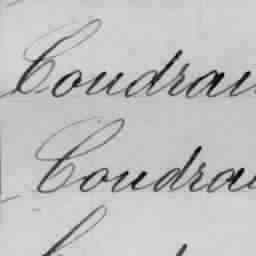 Coudrau
Coudrau